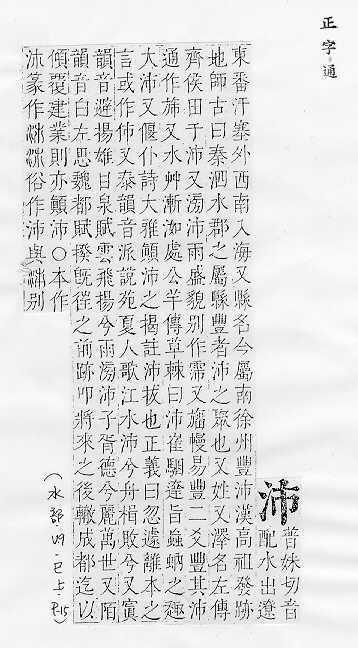 正字通
沛
普妹切音
配水出遼
東番汗塞外西南入海又縣名今屬南徐州豐沛漢高祖發跡
地師古曰秦泗水郡之屬縣豐者沛之聚也又姓又澤名左傳
齊侯田于沛又滂沛雨盛貌別作霈又旛幔易豐二爻豐其沛
通作旆又水艸漸洳處公羊傳草棘曰沛崔駰達旨蟁蚋之趣
大沛又偃仆詩大雅顛沛之揭註沛拔也正義曰忽遽離本之
言或作伂又泰韻音派說苑夏人歌江水沛兮舟楫敗兮又寘
韻音避揚雄甘泉賦雲飛揚兮雨滂沛于胥德兮麗萬世又陌
韻音白左思魏都賦揆旣往之前跡卽將來之後轍成都迄以
傾覆建業則亦顛沛○本作
篆作俗作沛與别
(水部 四·巳上·P.15)